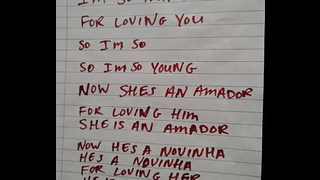 I'm SO
FOR LOVING YOU
SO I'm SO
SO I'm SO YOUNG
NOW SHES AN AMADOR
FOR LOVING HIM
SHE IS AN AMADOR
NOW HES A NOVINHA
HES A NOVINHA
FOR LOVING HER
HE IS